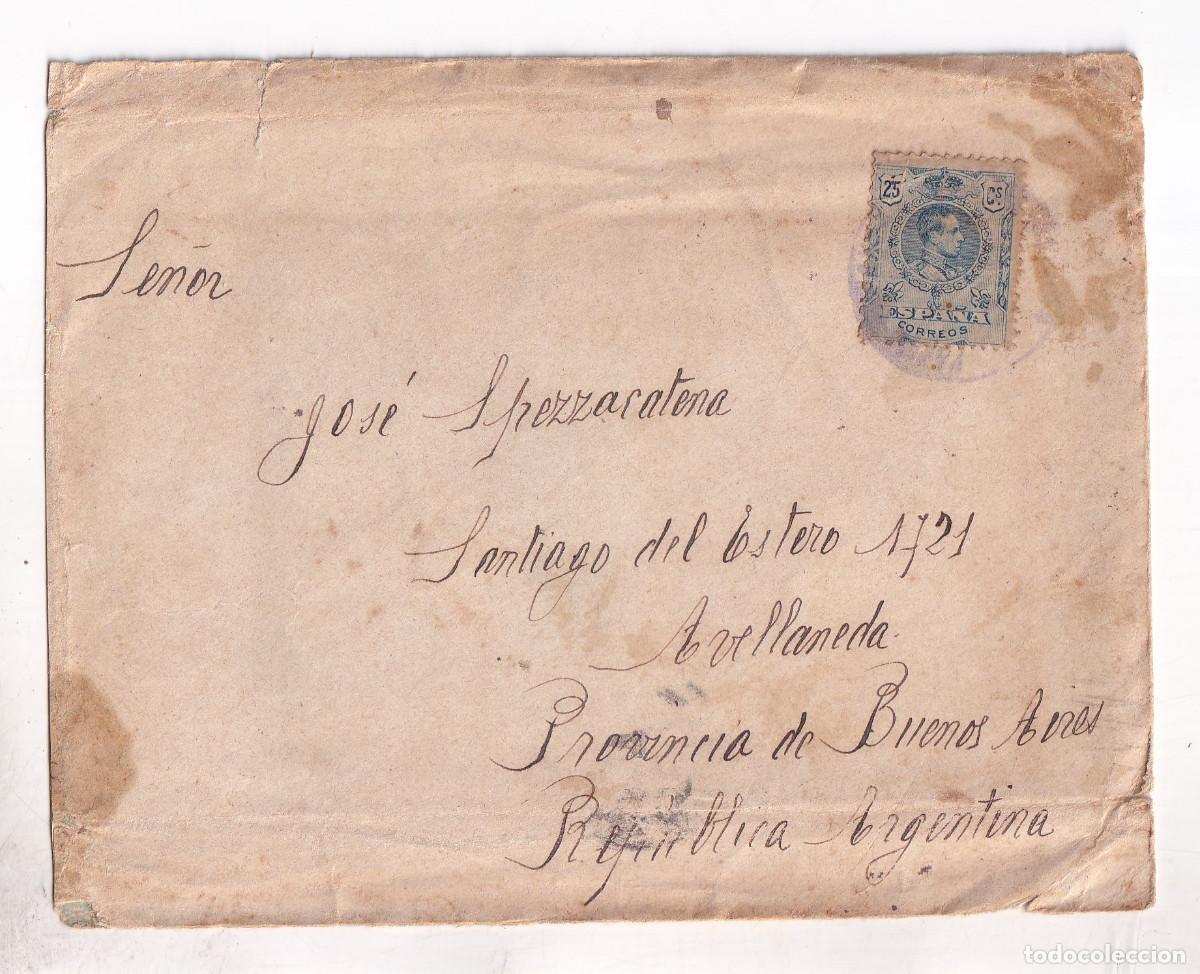 25 Cs
ESPAÑA
CORREOS
Señor
José Spezzacatena
Santiago del Estero 1721
Avellaneda
Provincia de Buenos Aires
República Argentina
todocoleccion